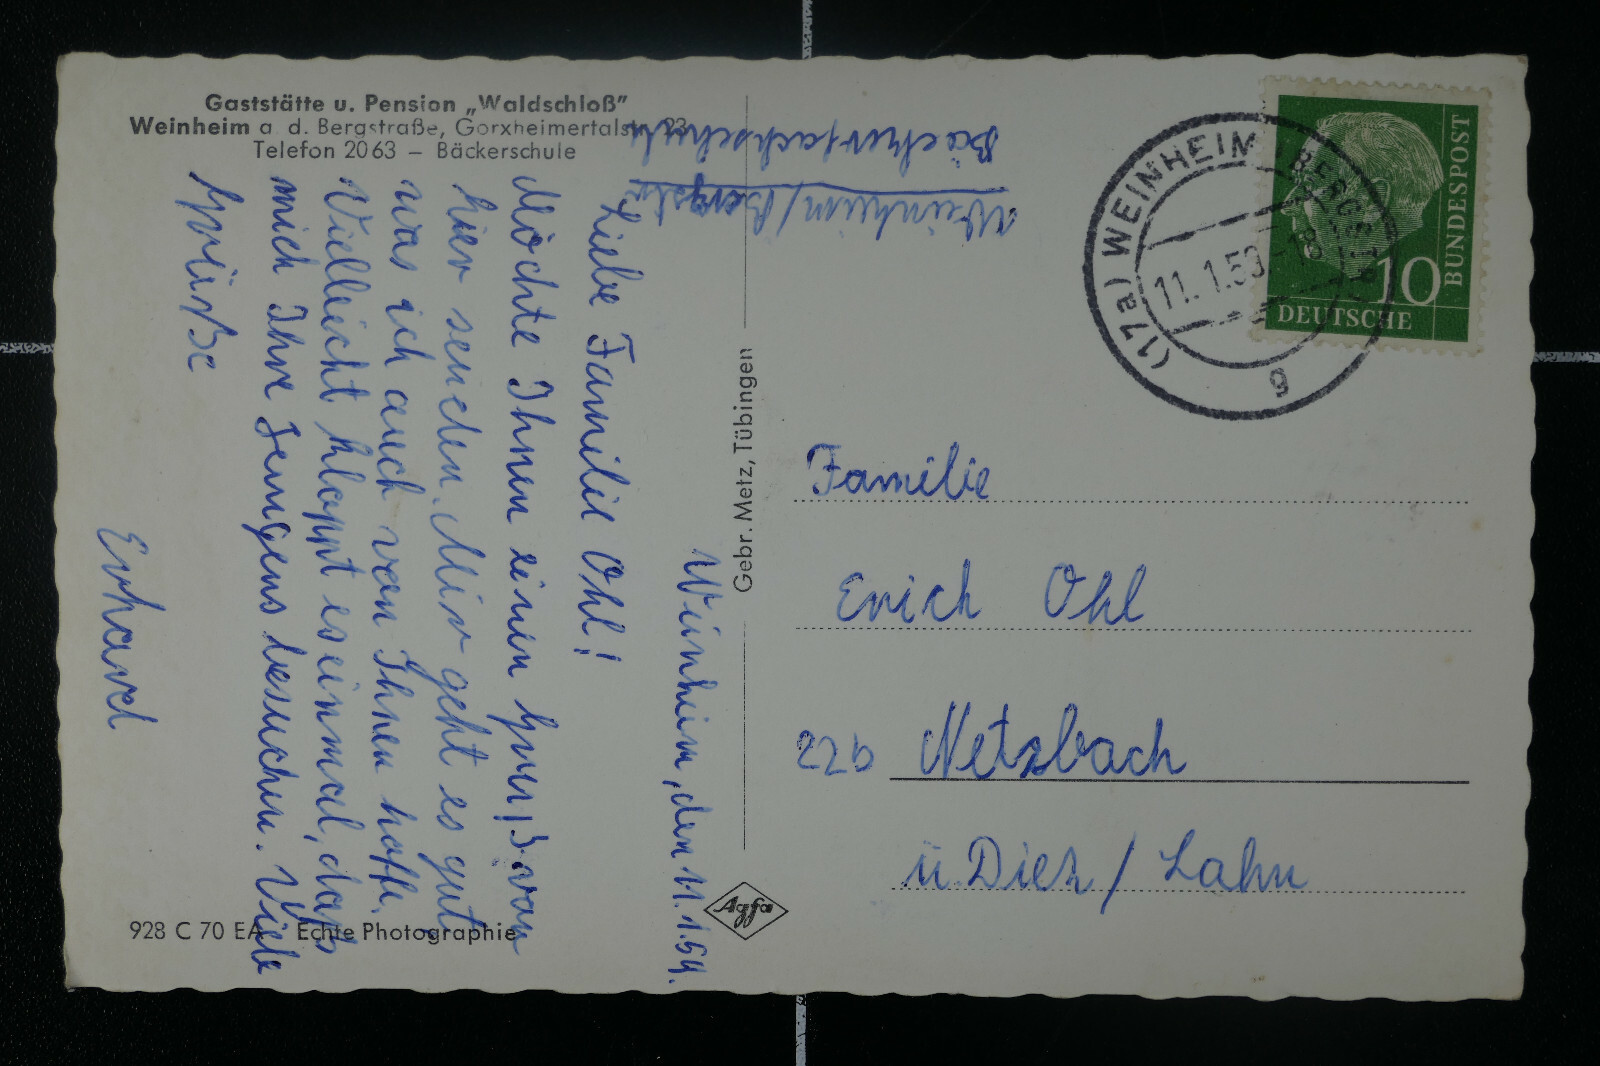 Gaststätte u. Pension „Waldschloß”
Weinheim a. d. Bergstraße, Gorxheimertalstr. 23
Telefon 2063 – Bäckerschule
Bäckerfachschule
Weinheim/Bergstr.
Weinheim, den 11.1.59.
Liebe Familie Ohl!
Möchte Ihnen einen Gruß von
hier senden. Mir geht es gut
was ich auch von Ihnen hoffe.
Vielleicht kloppt es einmal, daß
mich Ihre Jungens besuchen. Viele
Grüße
Erhard
928 C 70 EA Echte Photographie
Gebr. Metz, Tübingen
Agfa
(17a) WEINHEIM (BERGSTR)
11.1.59-18
g
10
DEUTSCHE
BUNDESPOST
Familie
Erich Ohl
22b Netzbach
ü. Diez / Lahn